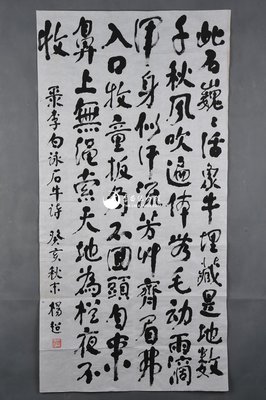 此石巍〻活象牛埋藏是地數
千秋風吹遍体无毛動雨滴
渾身似汗流芳艸齊眉弗
入口牧童扳角不回頭自來
鼻上無繩索天地為栏夜不
收
录李白咏石牛诗 癸亥秋末 楊超